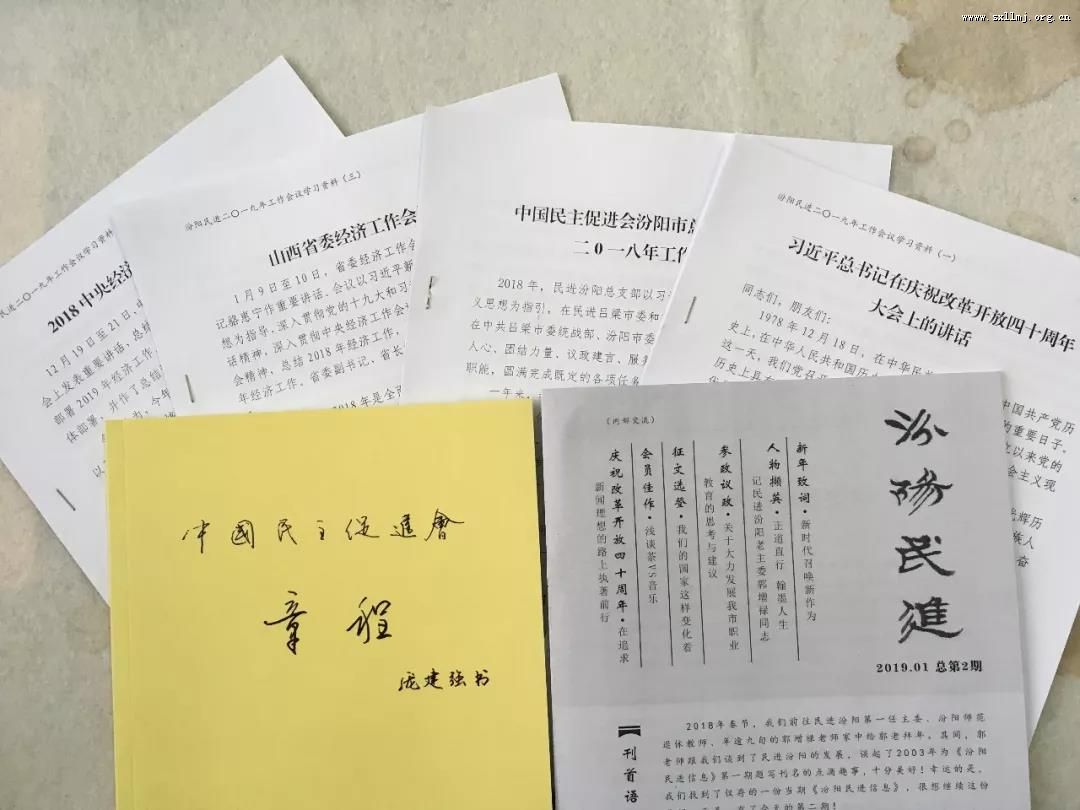 www.sxllmj.org.cn
民进二〇一九年工作会议学习资料
2018中央经济
12月19日至21日，中
会上发表重要讲话，总结
部署2019年经济工作
体部署，并作了总结
，今年
以
汾阳民进二〇一九年工作会议学习资料（三）
山西省委经济工作会
1月9日至10日，省委经济工作会
记骆惠宁作重要讲话。会议以习近平新
想为指导，深入贯彻党的十九大和习
话精神，深入贯彻中央经济工作会
会精神，总结2018年经济工作，
年经济工作。省委副书记、省长
2018年是全
中国民主促进会汾阳市总
二〇一八年工作
2018年，民进汾阳总支部以习
义思想为指引，在民进吕梁市委和
在中共吕梁市委统战部、汾阳市委
人心、团结力量、议政建言、服务
职能，圆满完成既定的各项任务
一年来，
汾阳民进二〇一九年工作会议学习资料（一）
习近平总书记在庆祝改革开放四十周年
大会上的讲话
同志们，朋友们：
1978年12月18日，在中华民
史上，在中华人民共和国历
这一天，我们党召开
历史上具有
中国共产党历
的重要日子。
以来党的
会主义现
光辉历
族人
奋
中國民主促進會
章程
庞建强书
（内部交流）
汾陽民進
2019.01 总第2期
新年致词·新时代召唤新作为
人物撷英·正道直行 翰墨人生
记民进汾阳老主委郭增禄同志
参政议政·关于大力发展我市职业
教育的思考与建议
征文选登·我们的国家这样变化着
会员佳作·浅谈茶VS音乐
庆祝改革开放四十周年·在追求
新闻理想的路上执著前行
刊首语
2018年春节，我们前往民进汾阳第一任主委、汾阳师范
退休教师、年逾九旬的郭增禄老师家中给郭老拜年。其间，郭
老师跟我们谈到了民进汾阳的发展，谈起了2003年为《汾阳
民进信息》第一期题写刊名的点滴趣事，十分美好！幸运的是，
我们找到了仅存的一份当期《汾阳民进信息》，很想继续这份